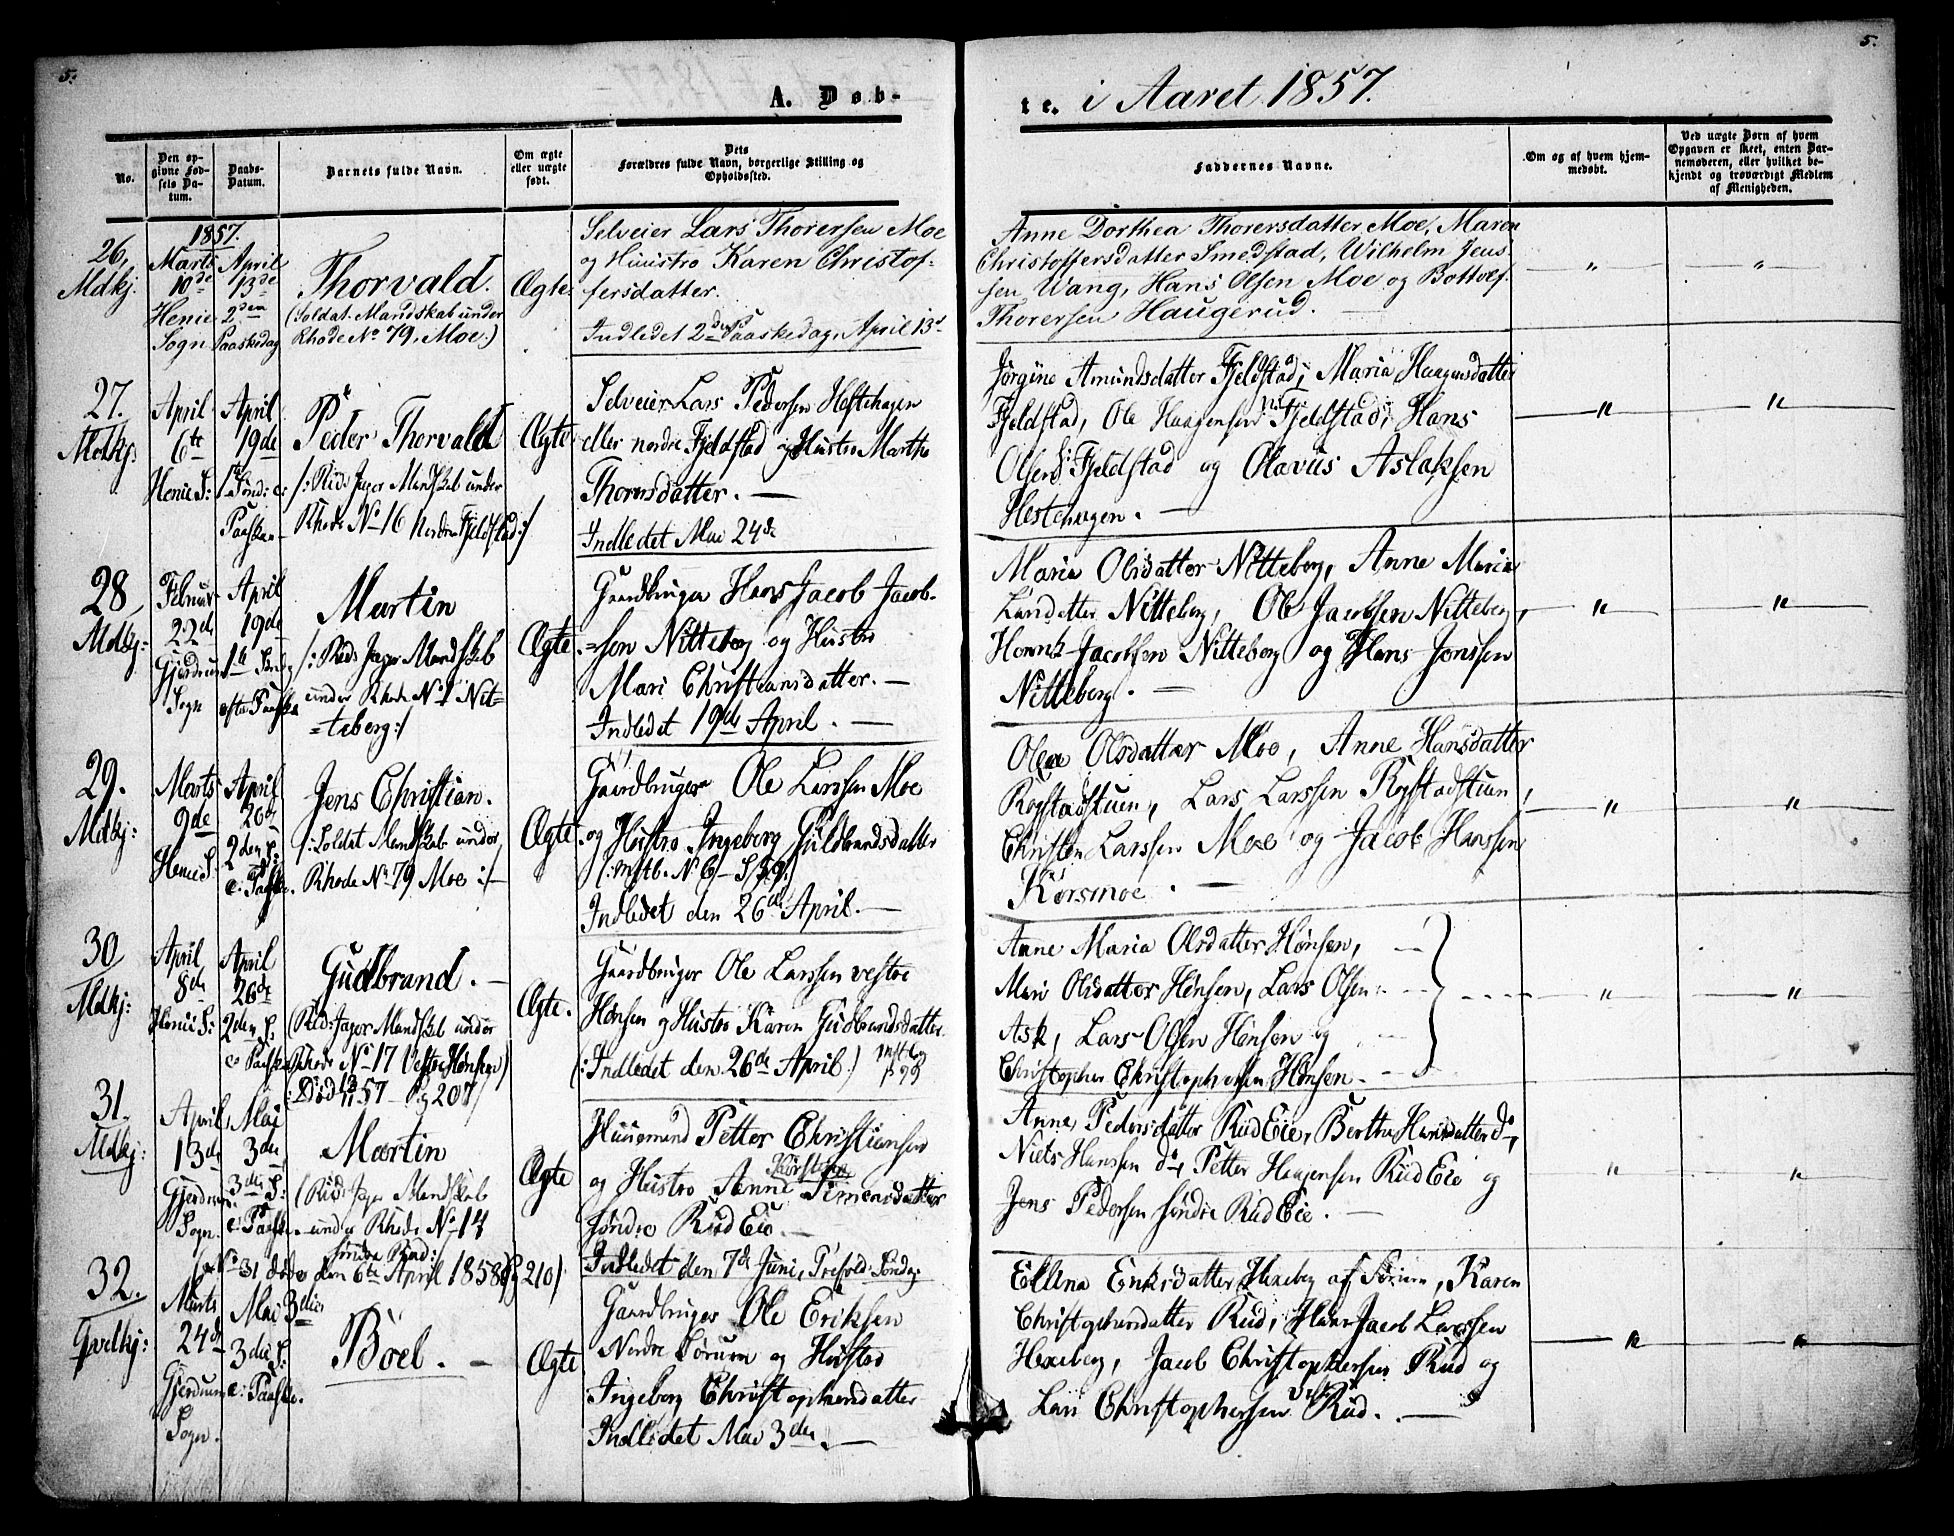 5.
A. Døb-
No.
Den op-
givne Fød-
sels Da-
tum.
Daabs-
Datum.
Barnets fulde Navn.
Om ægte
eller uægte
født.
Dets
Forældres fulde Navn, borgerlige Stilling og
Opholdssted.
26,
Mdkj.
1857.
Marts
10de
Henie
Sogn
April
13de
2den
Paaskedag
Thorvald.
(Soldat-Mandskab under
Rhode No 79, Moe.)
Ægte.
Selveier Lars Thorersen Moe
og Huustro Karen Christof-
fersdatter.
Indledet 2den Paaskedag, April 13d
27.
Mdkj.
April
6te
Henie S:
April
19de
1ste Sønd: e:
Paaske
Peder Thorvald
/: Rid: Jæger Mandskab under
Rhode No 16 Nordre Fjeldstad :/
Ægte
Selveier Lars Pedersen Hestehagen
eller nordre Fjeldstad og Hustro Marthe
Thorersdatter. —
Indledet Mai 24de
28
Mdkj:
Februar
22de
Gjerdrum
Sogn
April
19de
1ste Sønd
efter Paaske
Martin
/: Rid: Jæger Mandskab
under Rhode No 1 Nit-
=teberg :/
Ægte.
Gaardbruger Hans Jacob Jacob-
=son Nitteberg og Hustro
Mari Christiansdatter. —
Indledet 19de April. —
29.
Mdkj:
Marts
9de
Henie S.
April
26de
2den S:
e: Paaske.
Jens Christian.
/: Soldat Mandskab under
Rhode No 79 Moe :/ —
Ægte.
Gaardbruger Ole Larssen Moe
og Hustro Ingeborg Guldbrandsdatter
Indledet den 26de April. —
30
Mdkj:
April
8de
Henie S:
April
26de
2den S:
e Paaske
Gudbrand. —
(Rid: Jæger Mandskab under
Rhode No 17 Vestre Hønsen)
Ægte.
Gaardbruger Ole Larssen vestre
Hønsen og Hustro Karen Gudbrandsdatter
(: Indledet den 26de April.)
31.
Mdkj:
April
13de
Gjerdrum
Sogn.
Mai
3die
3die S:
e: Paaske
Martin
(Rid: Jæger Mandskab
under Rhode No 14
søndre Rud:
No 31 døde den 6te April 1858 Pg 210)
Ægte
Huusmand Petter Christiansen
og Hustro Anne Simensdatter
søndre Rud Eie —
Indledet den 7de Juni, Trefold: Søndag
32.
Marts
24de
Gjerdrum
Sogn.
Mai 3die
3die S:
e: Paaske.
Böel. —
Ægte
Gaardbruger Ole Eriksen
Nordre Sørum og Hustro
Ingeborg Christophersdatter
Indledet Mai 3die. —
5.
te. i Aaret 1857.
Faddernes Navne.
Om og af hvem hjem-
medøbt.
Ved uægte Børn af hvem
Opgaven er skeet, enten Bar-
nemoderen, eller hvilket be-
kjendt og troværdigt Medlem
af Menigheden.
Anne Dorthea Thorersdatter Moe, Maren
Christoffersdatter Smedstad, Wilhelm Jens-
sen Wang, Hans Olsen Moe og Bottolf
Thorersen Haugerud. —
Jørgine Amundsdatter Fjeldstad, Maria Haagensdatter
Fjeldstad, Ole Haagensen Fjeldstad, Hans
Olsen Fjeldstad og Olavus Aslaksen
Hestehagen. —
Maria Olsdatter Nitteberg, Anne Maria
Larsdatter Nitteberg, Ole Jacobsen Nitteberg,
Jacobsen Nitteberg og Hans Jonssen
Nitteberg. —
Olea Olsdatter Moe, Anne Hansdatter
Rogstadstuen, Lars Larssen Rogstadstuen,
Christen Larssen Moe og Jacob Hanssen
Korsmoe. —
Anne Maria Olsdatter Hønsen,
Mari Olsdatter Hønsen, Lars Olsen
Ask, Lars Olsen Hønsen og
Christopher Christophersen Hønsen. —
Anne Pedersdatter Rud Eie, Berthe Hansdatter do,
Niels Hanssen do, Petter Haagensen Rud Eie og
Jens Pedersen søndre Rud Eie. —
Ellina Eriksdatter Hexeberg af Sørum, Karen
Christophersdatter Rud, Hans Jacob Larssen
Hexeberg, Jacob Christophersen Rud og
Lars Christophersen Rud. —